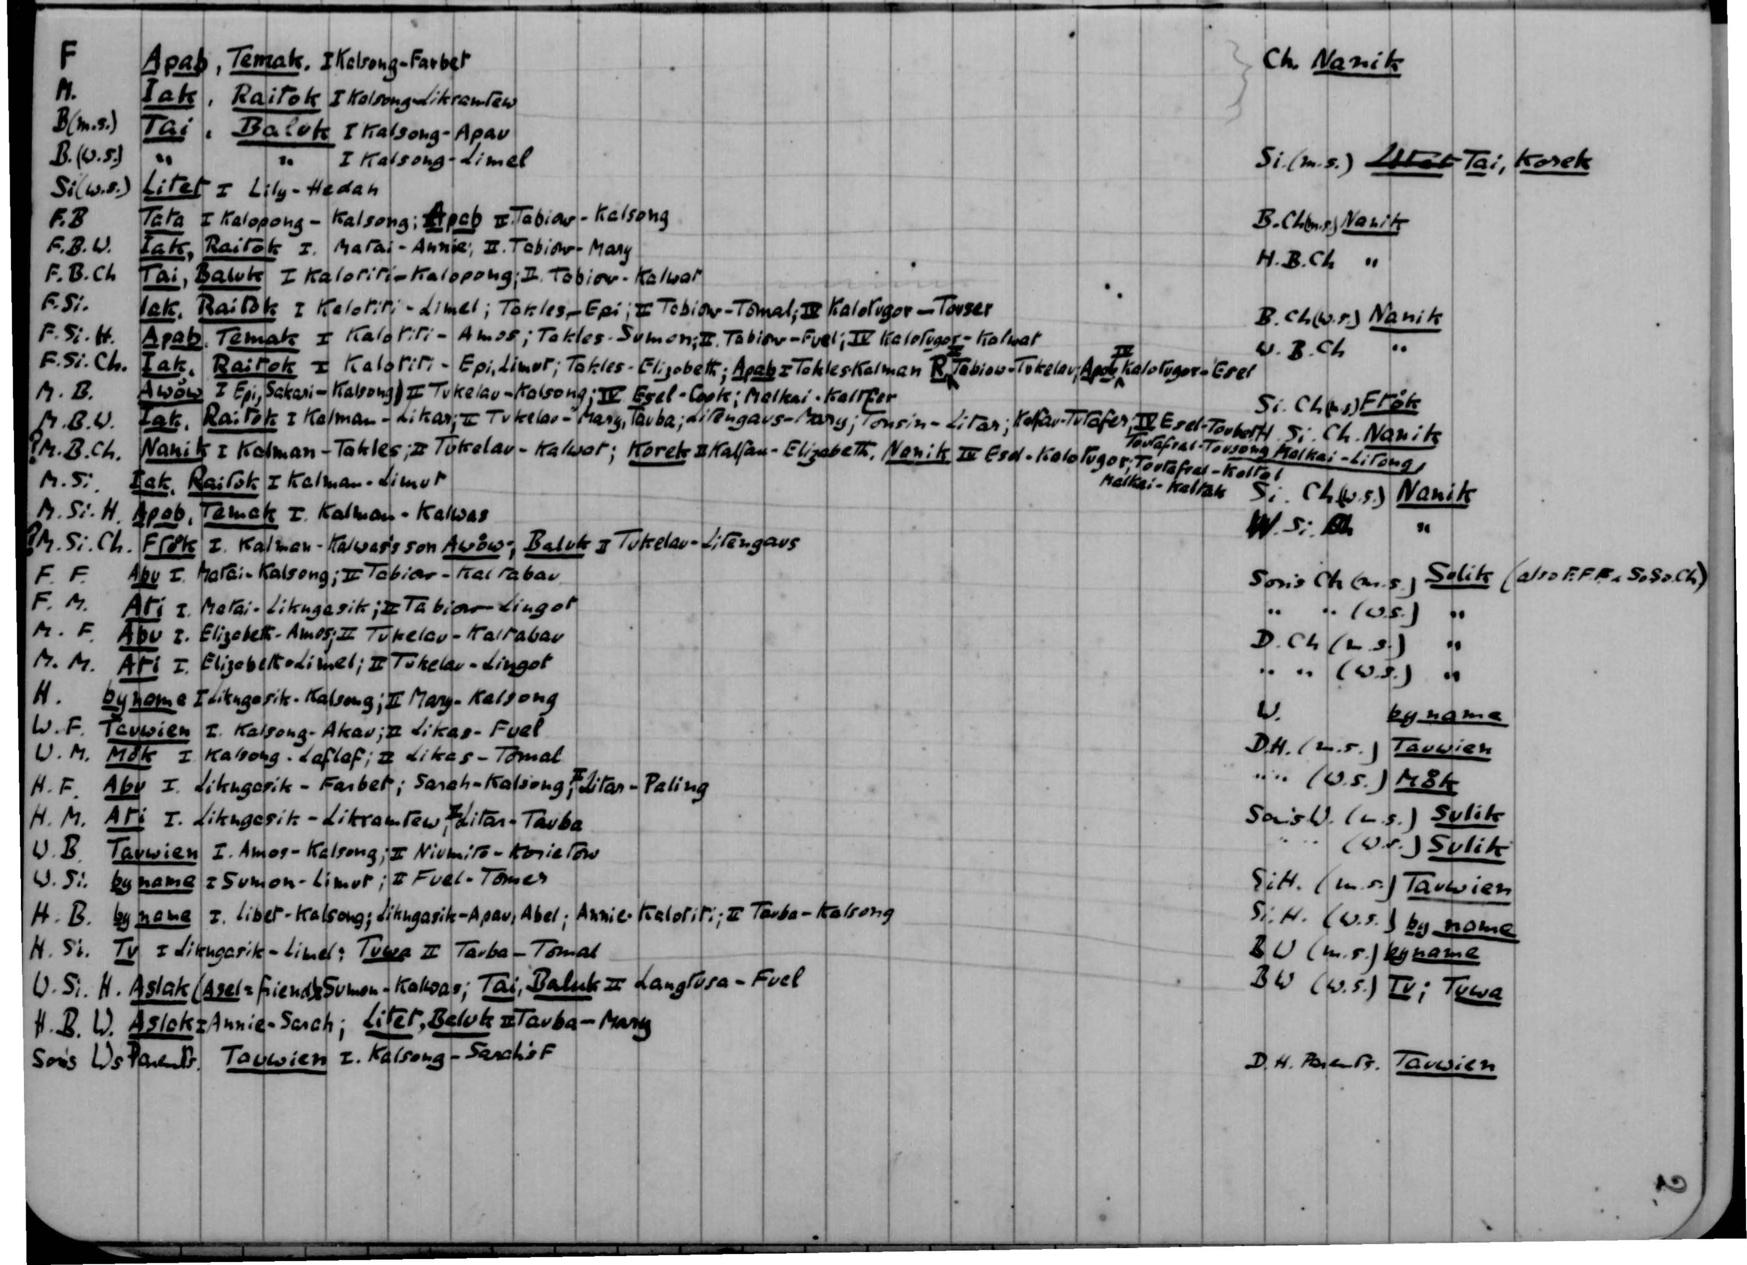 F Apab, Temak. I Kalsong-Farbet Ch. Nanik
M. Iak, Raitok I Kalsong-Likramtew
B(m.s.) Tai, Baluk I Kalsong-Apau
B.(w.s.) " " I Kalsong-Limel Si.(m.s.) Litet Tai, Korek
Si(w.s.) Litet I Lily-Hedan
F.B Tata I Kalopong-Kalsong; Apab II Tabiow-Kalsong B.Ch(m.s.) Nanik
F.B.W. Iak, Raitok I. Matai-Annie; II. Tabiow-Mary H.B.Ch "
F.B.Ch Tai, Baluk I Kalotiti-Kalopong; II. Tabiow-Kalwat
F.Si. Iak, Raitok I Kalotiti-Limel; Takles-Epi; II Tabiow-Tomal; IV Kalotugor-Touser B.Ch(w.s.) Nanik
F.Si.H. Apab, Temak I Kalotiti-Amos; Takles-Sumon; II. Tabiow-Fuel; IV Kalotugor-Kalwat W.B.Ch "
F.Si.Ch. Iak, Raitok I Kalotiti-Epi, Limut; Takles-Elizabeth; Apab I Takles Kalman R. II Tabiow-Tukelau; Apab IV Kalotugor-Esel
M.B. Awöw I Epi, Sakari-Kalsong) II Tukelau-Kalsong; IV Esel-Cook; Malkai-Kaltfer Si.Ch(m.s) Frök
M.B.W. Iak, Raitok I Kalman-Likas; II Tukelau-Mary, Tauba; Litengaus-Mary; Tousin-Litar; Kalfau-Tutafer; IV Esel-Toubat H.Si.Ch. Nanik
Toutafrat-Tousong Malkai-Litong,
?M.B.Ch. Nanik I Kalman-Takles; II Tukelau-Kalwat; Korek II Kalfau-Elizabeth, Nanik IV Esel-Kalotugor; Toutafrat-Kaltal
Malkai-Kaltak
M.Si. Iak, Raitok I Kalman-Limut Si.Ch(w.s) Nanik
M.Si.H. Apab, Temak I. Kalman-Kalwas W.Si. Ch "
?M.Si.Ch. Frök I. Kalman-Kalwas's son Awöw; Baluk II Tukelau-Litengaus
F.F. Abu I. Matai-Kalsong; II Tabiow-Kaltabau Son's Ch (m.s.) Sulik (also F.F.F. & So.So.Ch)
F.M. Ati I. Matai-Likngasik; II Tabiow-Lingot " " (w.s.) "
M.F. Abu I. Elizabeth-Amos; II Tukelau-Kaltabau D.Ch (m.s.) "
M.M. Ati I. Elizabeth-Limel; II Tukelau-Lingot " " (w.s.) "
H. by name I Likngasik-Kalsong; II Mary-Kalsong
W.F. Tauwien I. Kalsong-Akau; II Likas-Fuel W. by name
W.M. Mök I Kalsong-Laflaf; II Likas-Tomal D.H. (m.s.) Tauwien
H.F. Abu I. Likngasik-Farbet; Sarah-Kalsong; II Litar-Paling " " (w.s.) Mök
H.M. Ati I. Likngasik-Likramtew; II Litar-Tauba Son's W. (m.s.) Sulik
W.B. Tauwien I. Amos-Kalsong; II Niumito-Korietow " " (w.s.) Sulik
W.Si. by name I Sumon-Limut; II Fuel-Tomes Si.H. (m.s.) Tauwien
H.B. by name I. Libet-Kalsong; Likngasik-Apau, Abel; Annie-Kalotiti; II Tauba-Kalsong Si.H. (w.s.) by name
H.Si. Tu I Likngasik-Limel; Tuwa II Tauba-Tomal B W (m.s.) by name
W.Si.H. Aslak (Asel=friend) I Sumon-Kalwas; Tai, Baluk II Langtusa-Fuel B W (w.s.) Tu; Tuwa
H.B.W. Aslak I Annie-Sarah; Litet, Baluk II Tauba-Mary
Son's W's Parents. Tauwien I. Kalsong-Sarah's F D.H. Parents. Tauwien